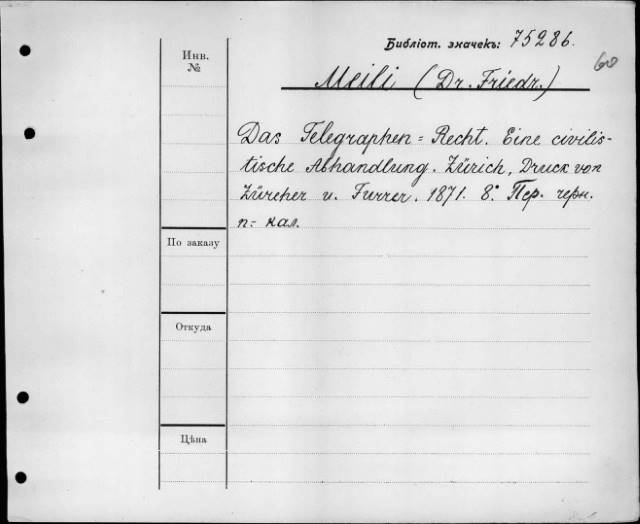 Библіот. значекъ: 75286.
60
Инв.
№
Meili (Dr. Friedr.)
Das Telegraphen = Recht. Eine civilis-
tische Abhandlung. Zürich, Druck von
Zürcher u. Furrer. 1871. 8.° Пер. черн.
п - кал.
По заказу
Откуда
Цѣна